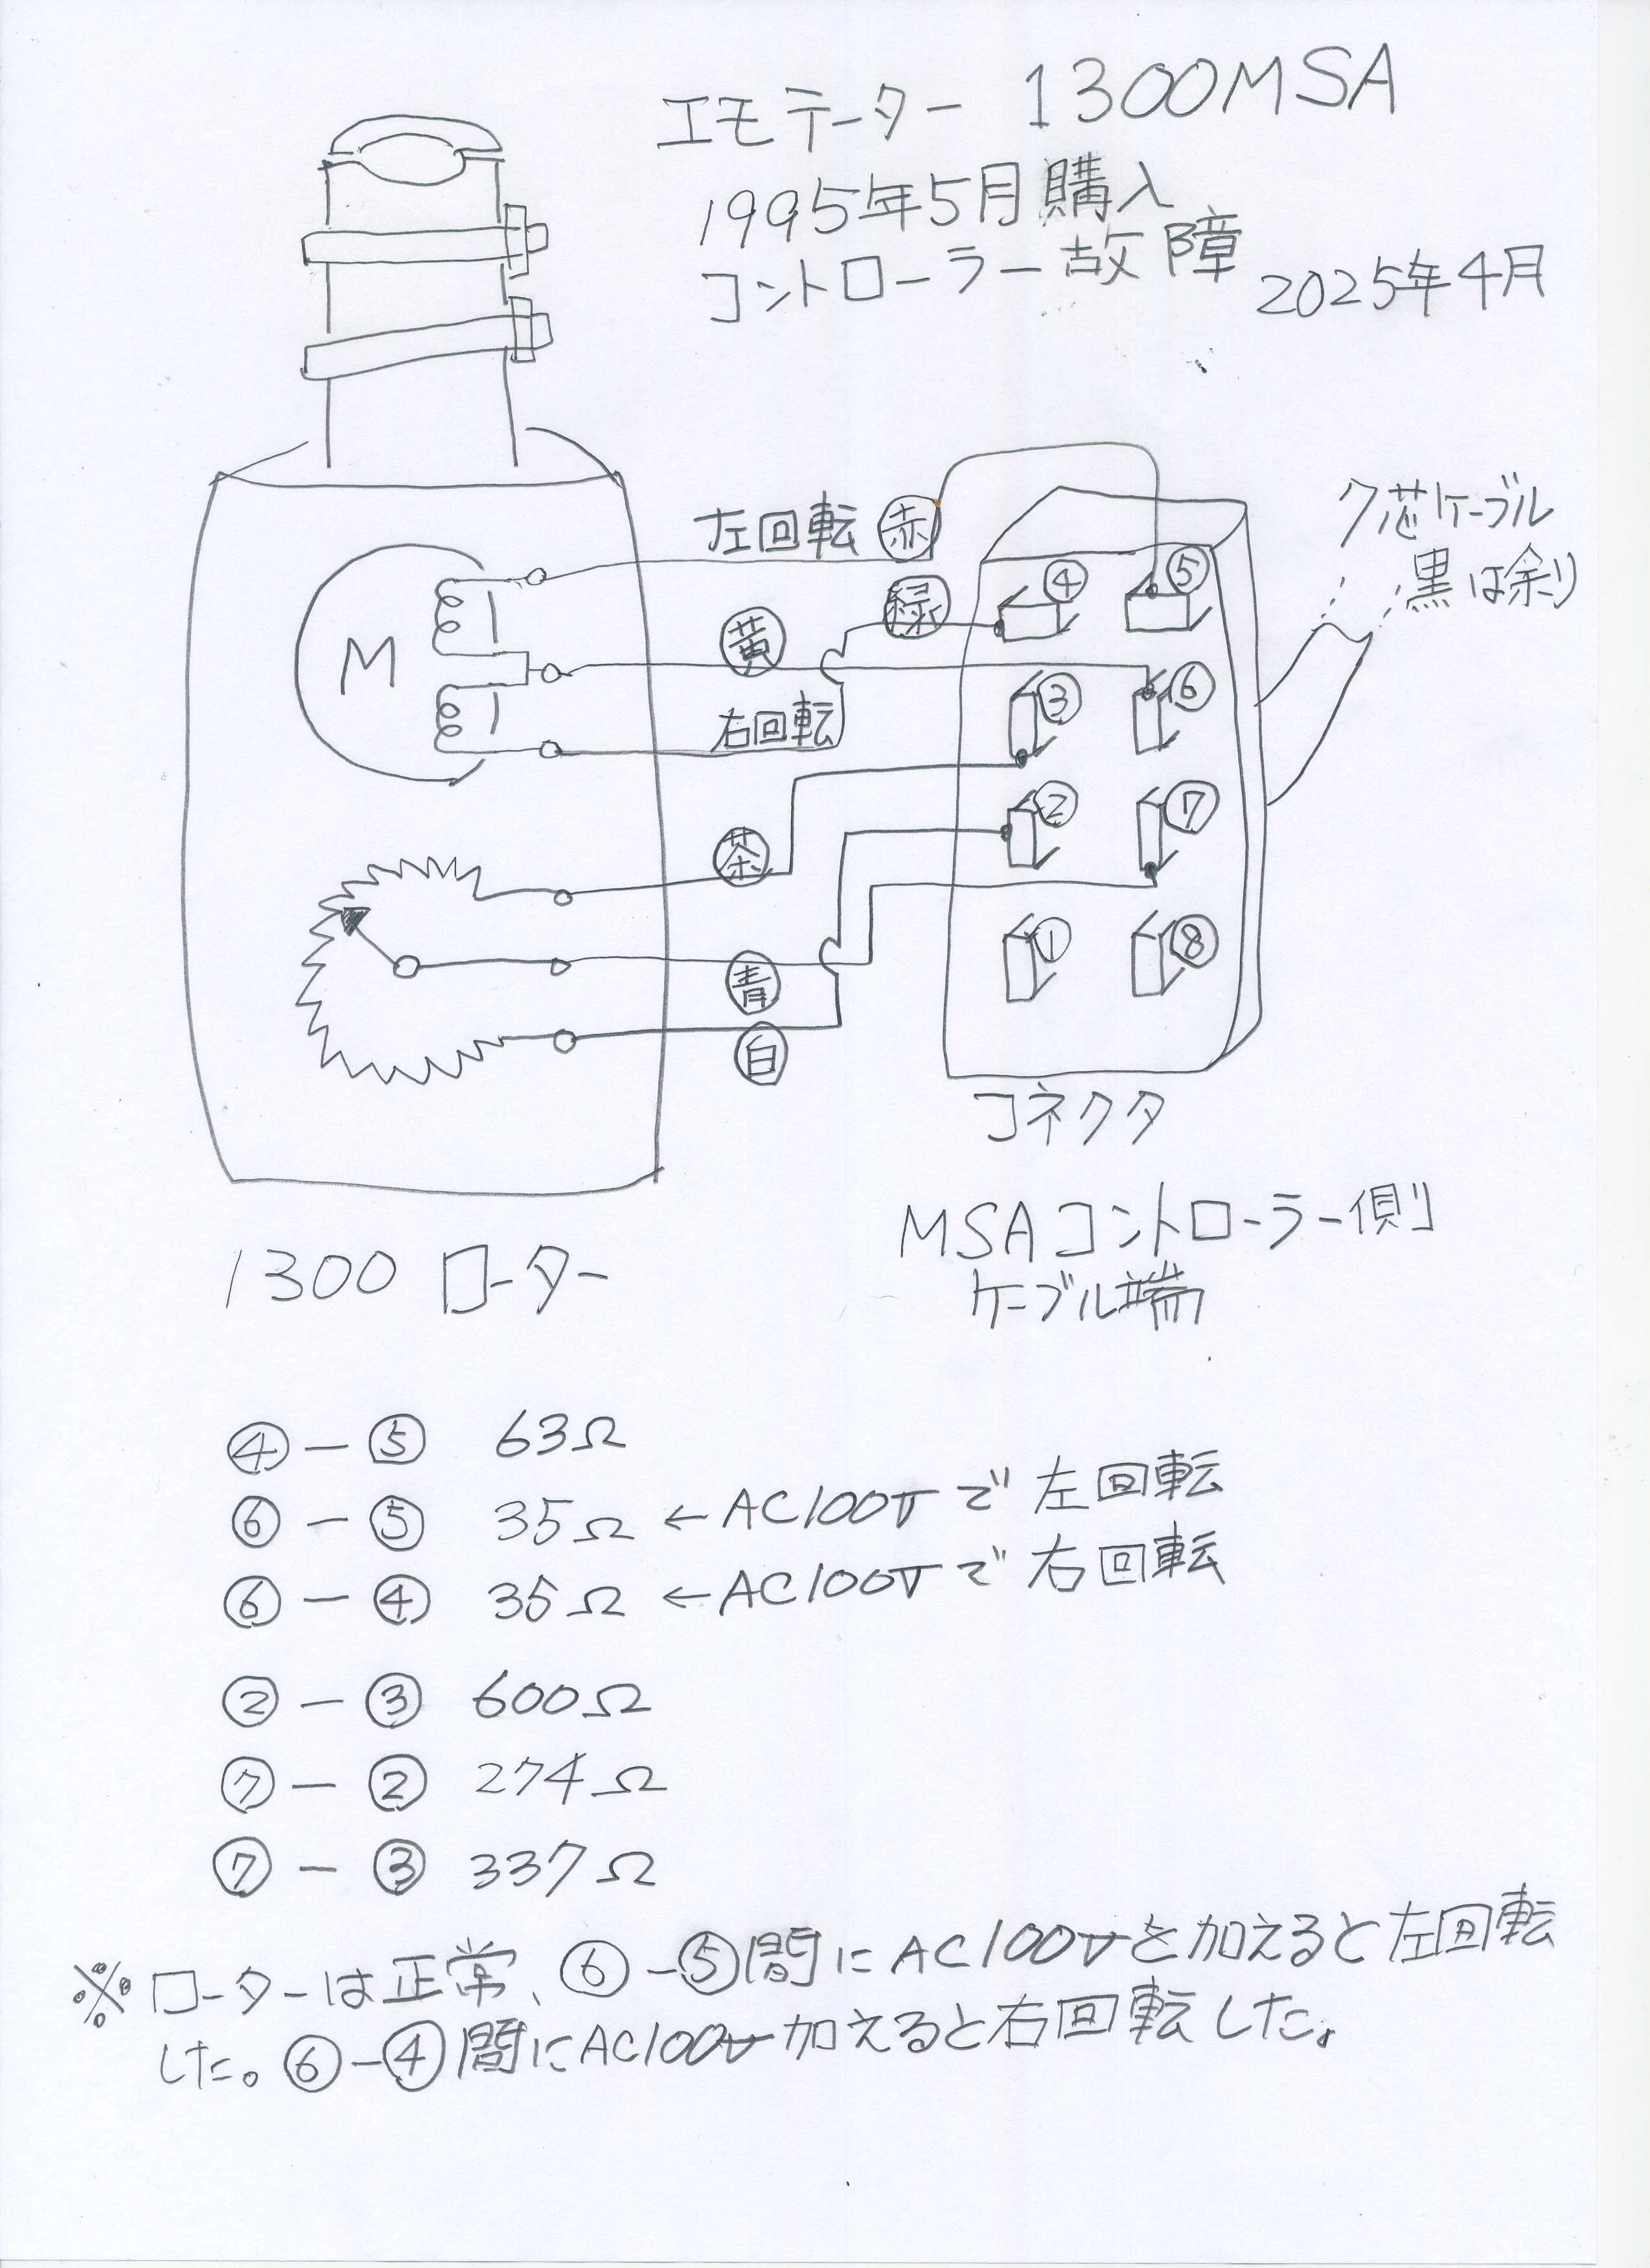 エモテーター 1300MSA
1995年5月購入
コントローラー故障 2025年4月
7芯ケーブル
黒は余り
左回転 赤
緑
黄
右回転
茶
青
白
M
④ ⑤
③ ⑥
② ⑦
① ⑧
コネクタ
MSAコントローラー側
ケーブル端
1300 ローター
④ー⑤ 63Ω
⑥ー⑤ 35Ω ←AC100Vで左回転
⑥ー④ 35Ω ←AC100Vで右回転
②ー③ 600Ω
⑦ー② 274Ω
⑦ー③ 337Ω
※ローターは正常、⑥ー⑤間にAC100Vを加えると左回転
した。⑥ー④間にAC100V加えると右回転した。